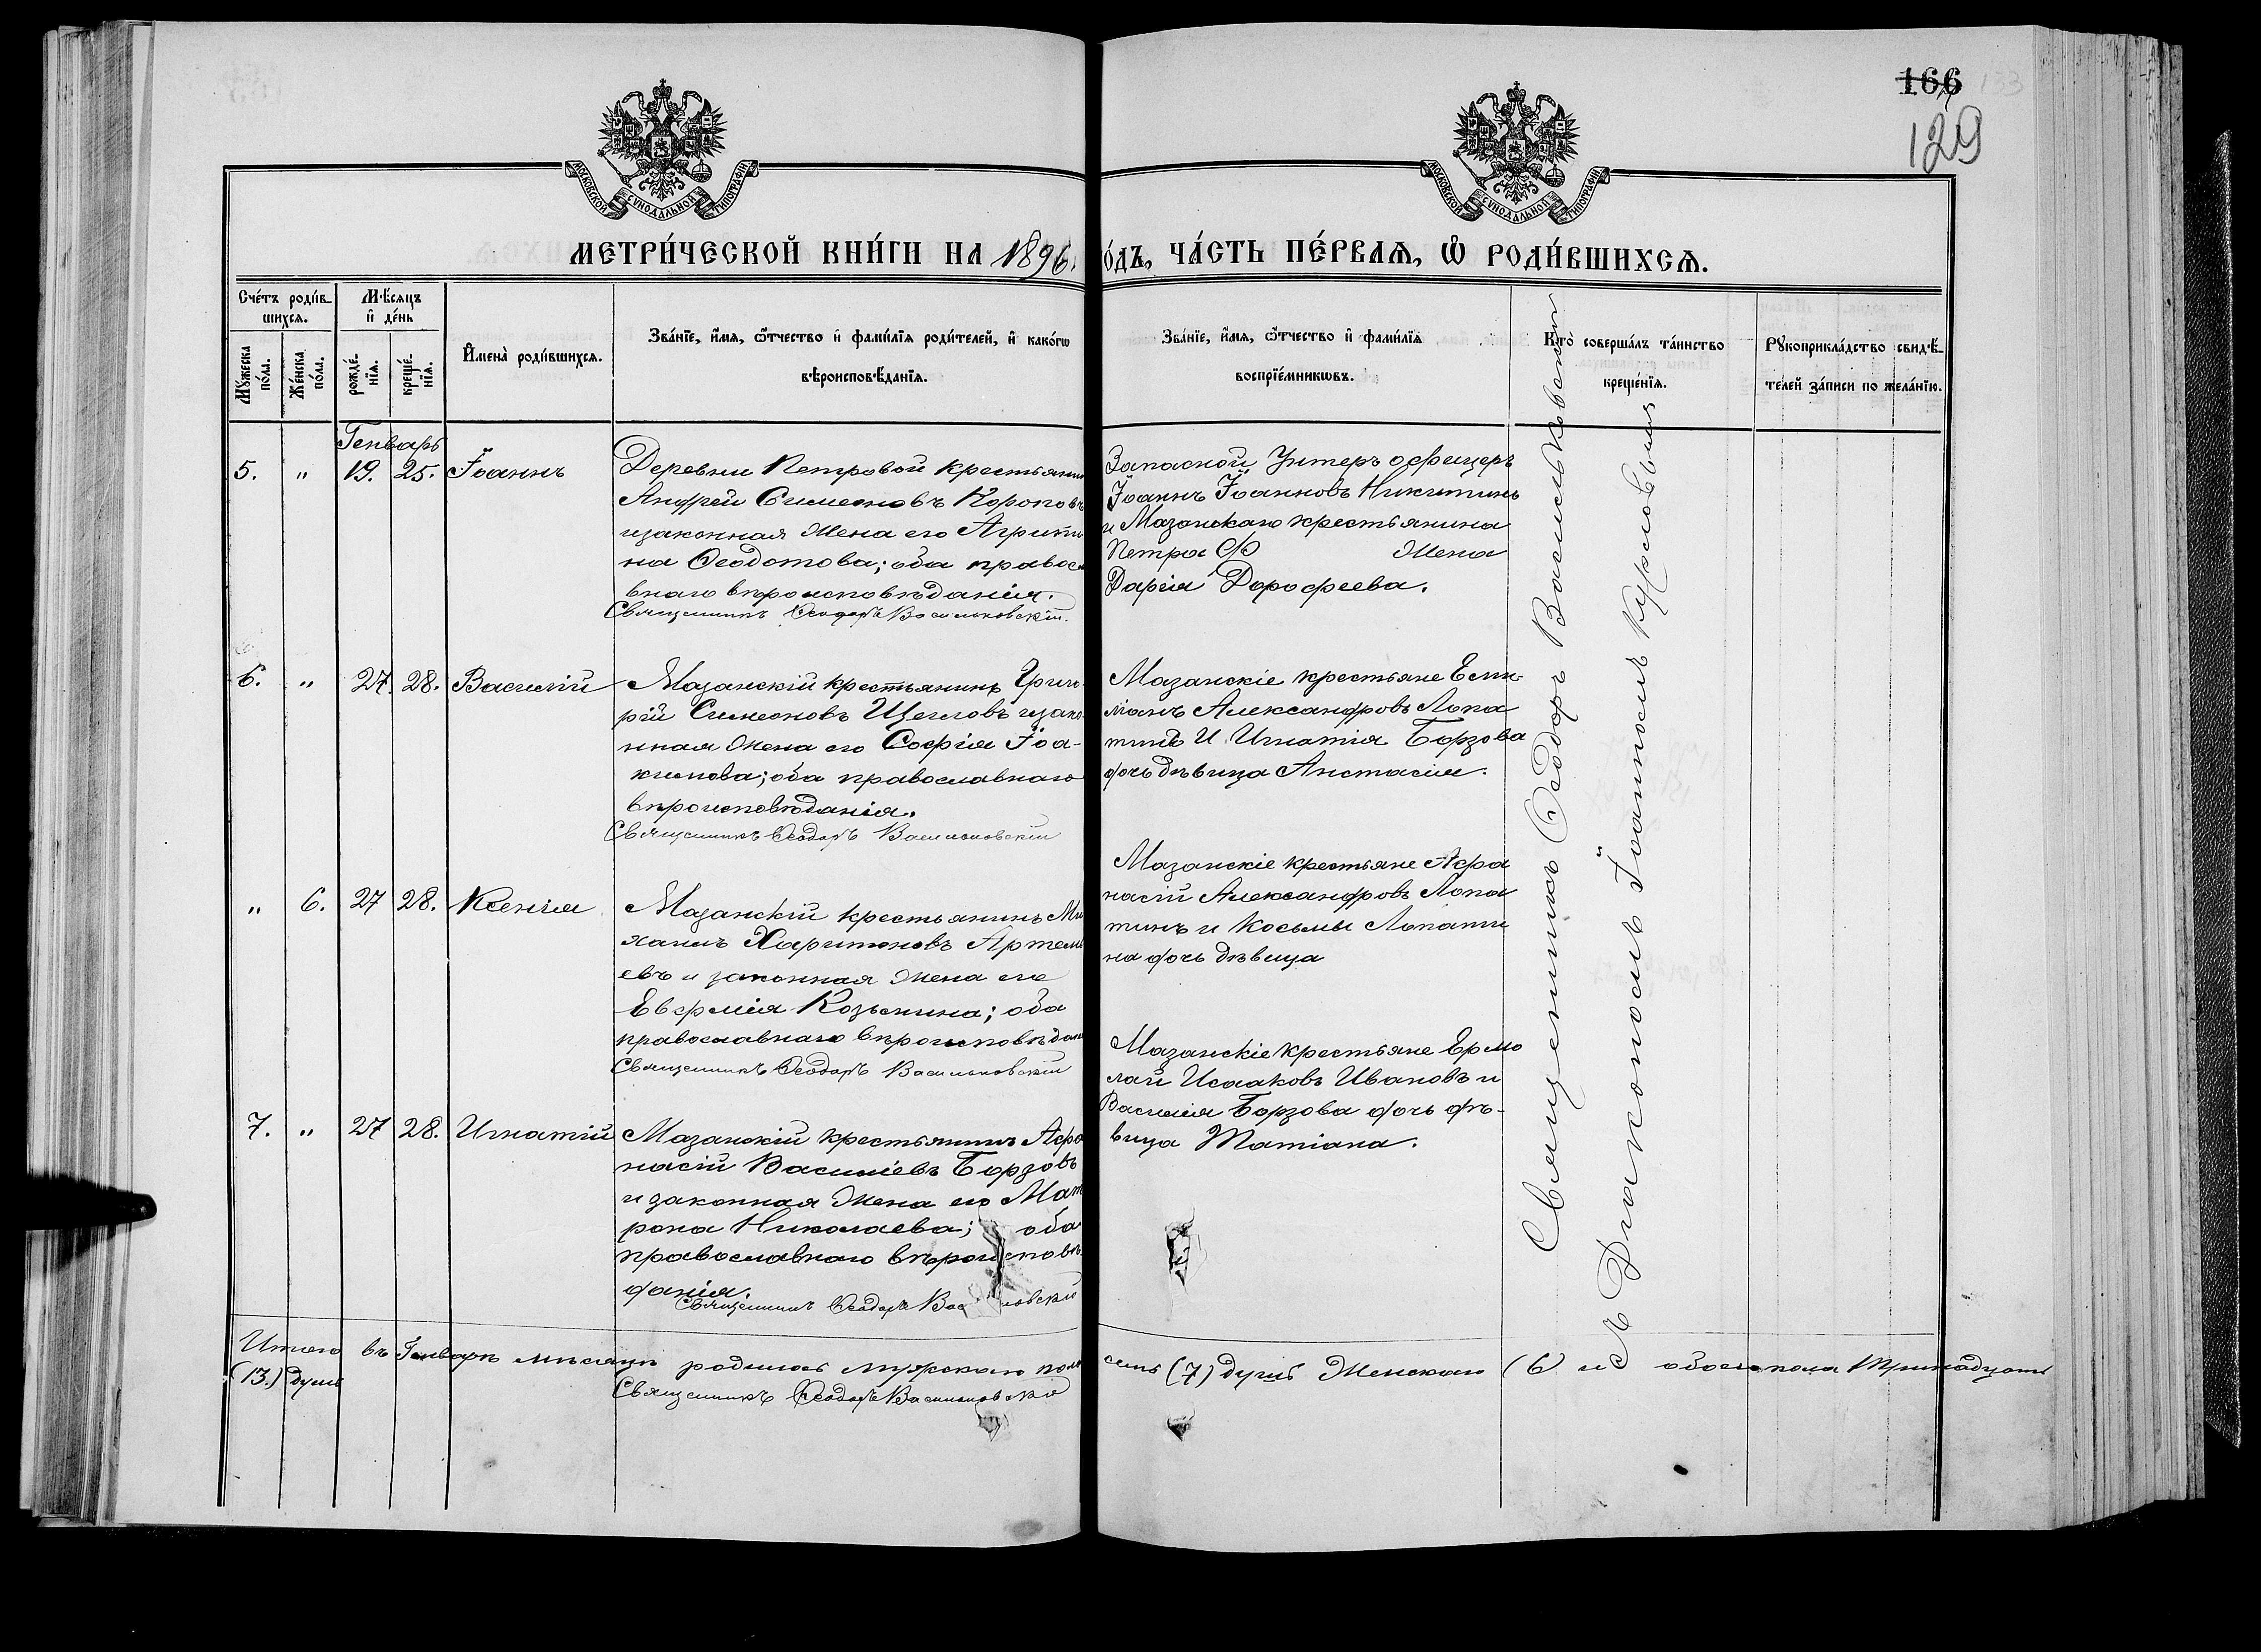 166
129
133
МОСКОВСКОЙ СѴНОДАЛЬНОЙ ТИПОГРАФІИ
МОСКОВСКОЙ СѴНОДАЛЬНОЙ ТИПОГРАФІИ
МЕТРИ́ЧЕСКОЙ КНИ́ГИ НА 1896.
О́ДЪ, ЧА́СТЬ ПЕ́РВАѦ, Ѡ҆ РОДИ́ВШИХСѦ.
Сче́тъ роди́в-
шихсѧ.
Мꙋ́жеска
по́ла.
Же́нска
по́ла.
М҃ѣсѧцъ
и҆ де́нь
рожде́-
нїѧ.
креще́-
нїѧ.
И҆мена̀ роди́вшихсѧ.
Зва́нїе, и҆́мѧ, ѻ҆́тчество и҆ фами́лїѧ роди́телей, и҆ како́гѡ
вѣроисповѣ́данїѧ.
Зва́нїе, и҆́мѧ, ѻ҆́тчество и҆ фами́лїѧ
воспрїе́мникѡвъ.
Кто̀ соверша́лъ та́инство
креще́нїѧ.
Рꙋкоприкла́дство свидѣ́-
телей за́писи по жела́нїю.
Генварь
5. " 19. 25. Іоаннъ
Деревни Петровой крестьянин
Андрей Симеоновъ Короповъ
и законная жена его Агрипи
на Ѳеодотова; оба правосла
внаго вѣроисповѣданія.
Священникъ Ѳеодоръ Васильковскій.
Запасной Унтеръ офицеръ
Іоаннъ Іоанновъ Никитинъ
и Мазанскаго крестьянина
Петра жена
Дарія Дорофеева.
6. " 27. 28. Василій
Мазанскій крестьянинъ Григо-
рій Симеоновъ Щегловъ и зако
нная жена его Софія Іоа-
кимова; оба православнаго
вѣроисповѣданія.
Священникъ Ѳеодоръ Васильковскій
Мазанскіе крестьяне Емм-
Александровъ Лопа
тинъ и Игнатія Борзова
дочь дѣвица Анстасія.
" 6. 27 28. Ксенія
Мазанскій крестьянинъ Ми
хаилъ Харитоновъ Артемь
евъ и законная жена его
Евфимія Козьмина; оба
православнаго вѣроисповѣдан
Священникъ Ѳеодоръ Васильковскій
Мазанскіе крестьяне Афа
насій Александровъ Лопа
тинъ и Косьмы Лопати
на дочь дѣвица
7. " 27 28. Игнатій
Мазанскій крестьянинъ Афа
насій Василіевъ Борзовъ
и законная жена его Мат
рона Николаева; оба
православнаго вѣроисповѣ
данія.
Священникъ Ѳеодоръ Васильковскій
Мазанскіе крестьяне Ермо
лай Исааковъ Ивановъ и
Василія Борзова дочь дѣ-
вица Татіана.
Священникъ Ѳеодоръ Васильковскій
съ Діакономъ Іоанномъ
Итого въ Генварѣ мѣсяцѣ родилось мужскаго пола семь (7) душъ Женскаго (6) и обоего пола тринадцать
(13.) душъ
Священникъ Ѳеодоръ Васильковскій